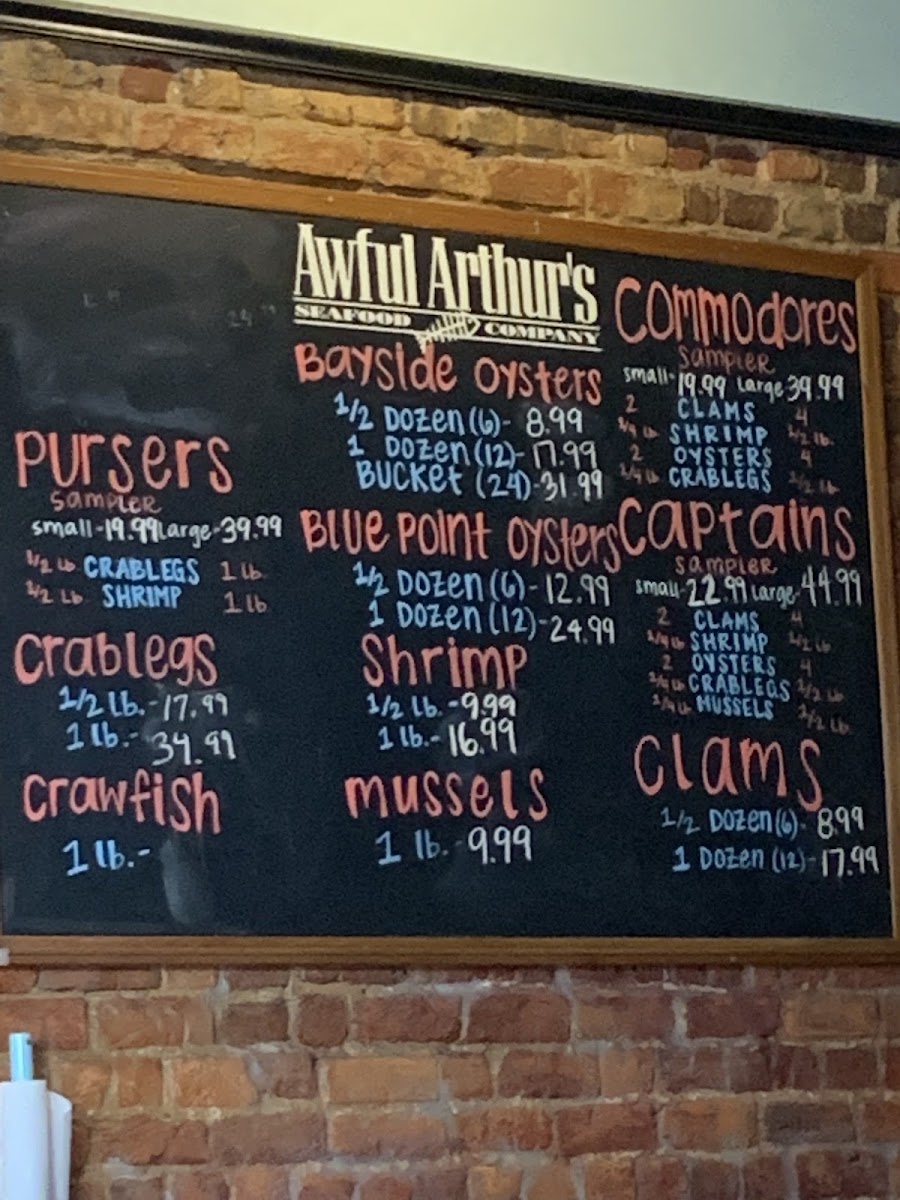 Awful Arthur's
SEAFOOD COMPANY
Bayside Oysters
1/2 Dozen (6)- 8.99
1 Dozen (12)- 17.99
Bucket (24)- 31.99
Blue Point Oysters
1/2 Dozen (6)- 12.99
1 Dozen (12)- 24.99
Shrimp
1/2 lb.- 9.99
1 lb.- 16.99
Mussels
1 lb.- 9.99
Pursers
Sampler
small-19.99 Large-39.99
1/2 Lb CRABLEGS 1 lb
1/2 Lb SHRIMP 1 lb
Crablegs
1/2 lb.- 17.99
1 lb.- 34.99
Crawfish
1 lb.-
Commodores
Sampler
small-19.99 Large-39.99
2 CLAMS 4
1/4 Lb SHRIMP 1/2 lb.
2 OYSTERS 4
1/4 Lb CRABLEGS 1/2 lb
Captains
Sampler
small-22.99 Large-44.99
2 CLAMS 4
1/4 Lb SHRIMP 1/2 lb
2 OYSTERS 4
1/4 Lb CRABLEGS 1/2 lb
1/4 Lb MUSSELS 1/2 lb.
Clams
1/2 Dozen (6)- 8.99
1 Dozen (12)- 17.99